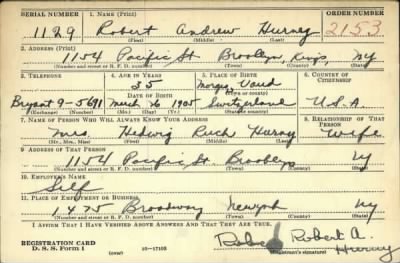 SERIAL NUMBER 1. NAME (Print) ORDER NUMBER
1129 Robert Andrew Hurny 2153
(First) (Middle) (Last)
2. ADDRESS (Print)
1154 Pacific St Brooklyn, Kings, NY
(Number and street or R. F. D. number) (Town) (County) (State)
3. TELEPHONE 4. AGE IN YEARS 5. PLACE OF BIRTH 6. COUNTRY OF CITIZENSHIP
35 Vaud
DATE OF BIRTH (Town or county)
Bryant 9-5691 March 26 1905 Switzerland U.S.A.
(Exchange) (Number) (Mo.) (Day) (Yr.) (State or country)
7. NAME OF PERSON WHO WILL ALWAYS KNOW YOUR ADDRESS 8. RELATIONSHIP OF THAT PERSON
Mrs. Hedwig Ruch Hurny Wife
(Mr., Mrs., Miss) (First) (Middle) (Last)
9. ADDRESS OF THAT PERSON
1154 Pacific St. Brooklyn NY
(Number and street or R. F. D. number) (Town) (County) (State)
10. EMPLOYER'S NAME
Self
11. PLACE OF EMPLOYMENT OR BUSINESS
1475 Broadway New York NY
(Number and street or R. F. D. number) (Town) (County) (State)
I AFFIRM THAT I HAVE VERIFIED ABOVE ANSWERS AND THAT THEY ARE TRUE.
REGISTRATION CARD
D. S. S. Form 1 (over) 16-17105
Robert A. Hurny
(Registrant's signature)